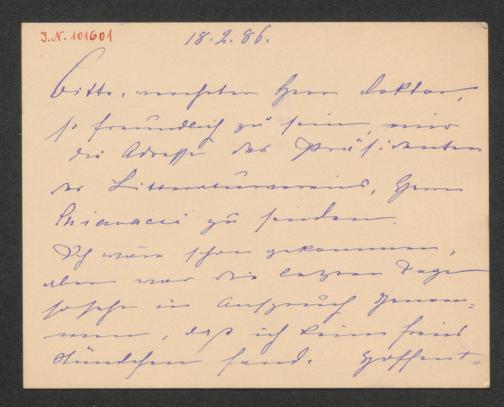 J.N. 101601
18.2.86.
Bitte, verehrter Herr Doktor,
so freundlich zu sein, mir
die Adresse des Präsidenten
des Litteraturvereins, Herrn
zu senden.
Ich wäre schon gekommen,
aber war die letzten Tage
so sehr in Anspruch genom-
men, daß ich kein freies
Stündchen fand. Hoffent-